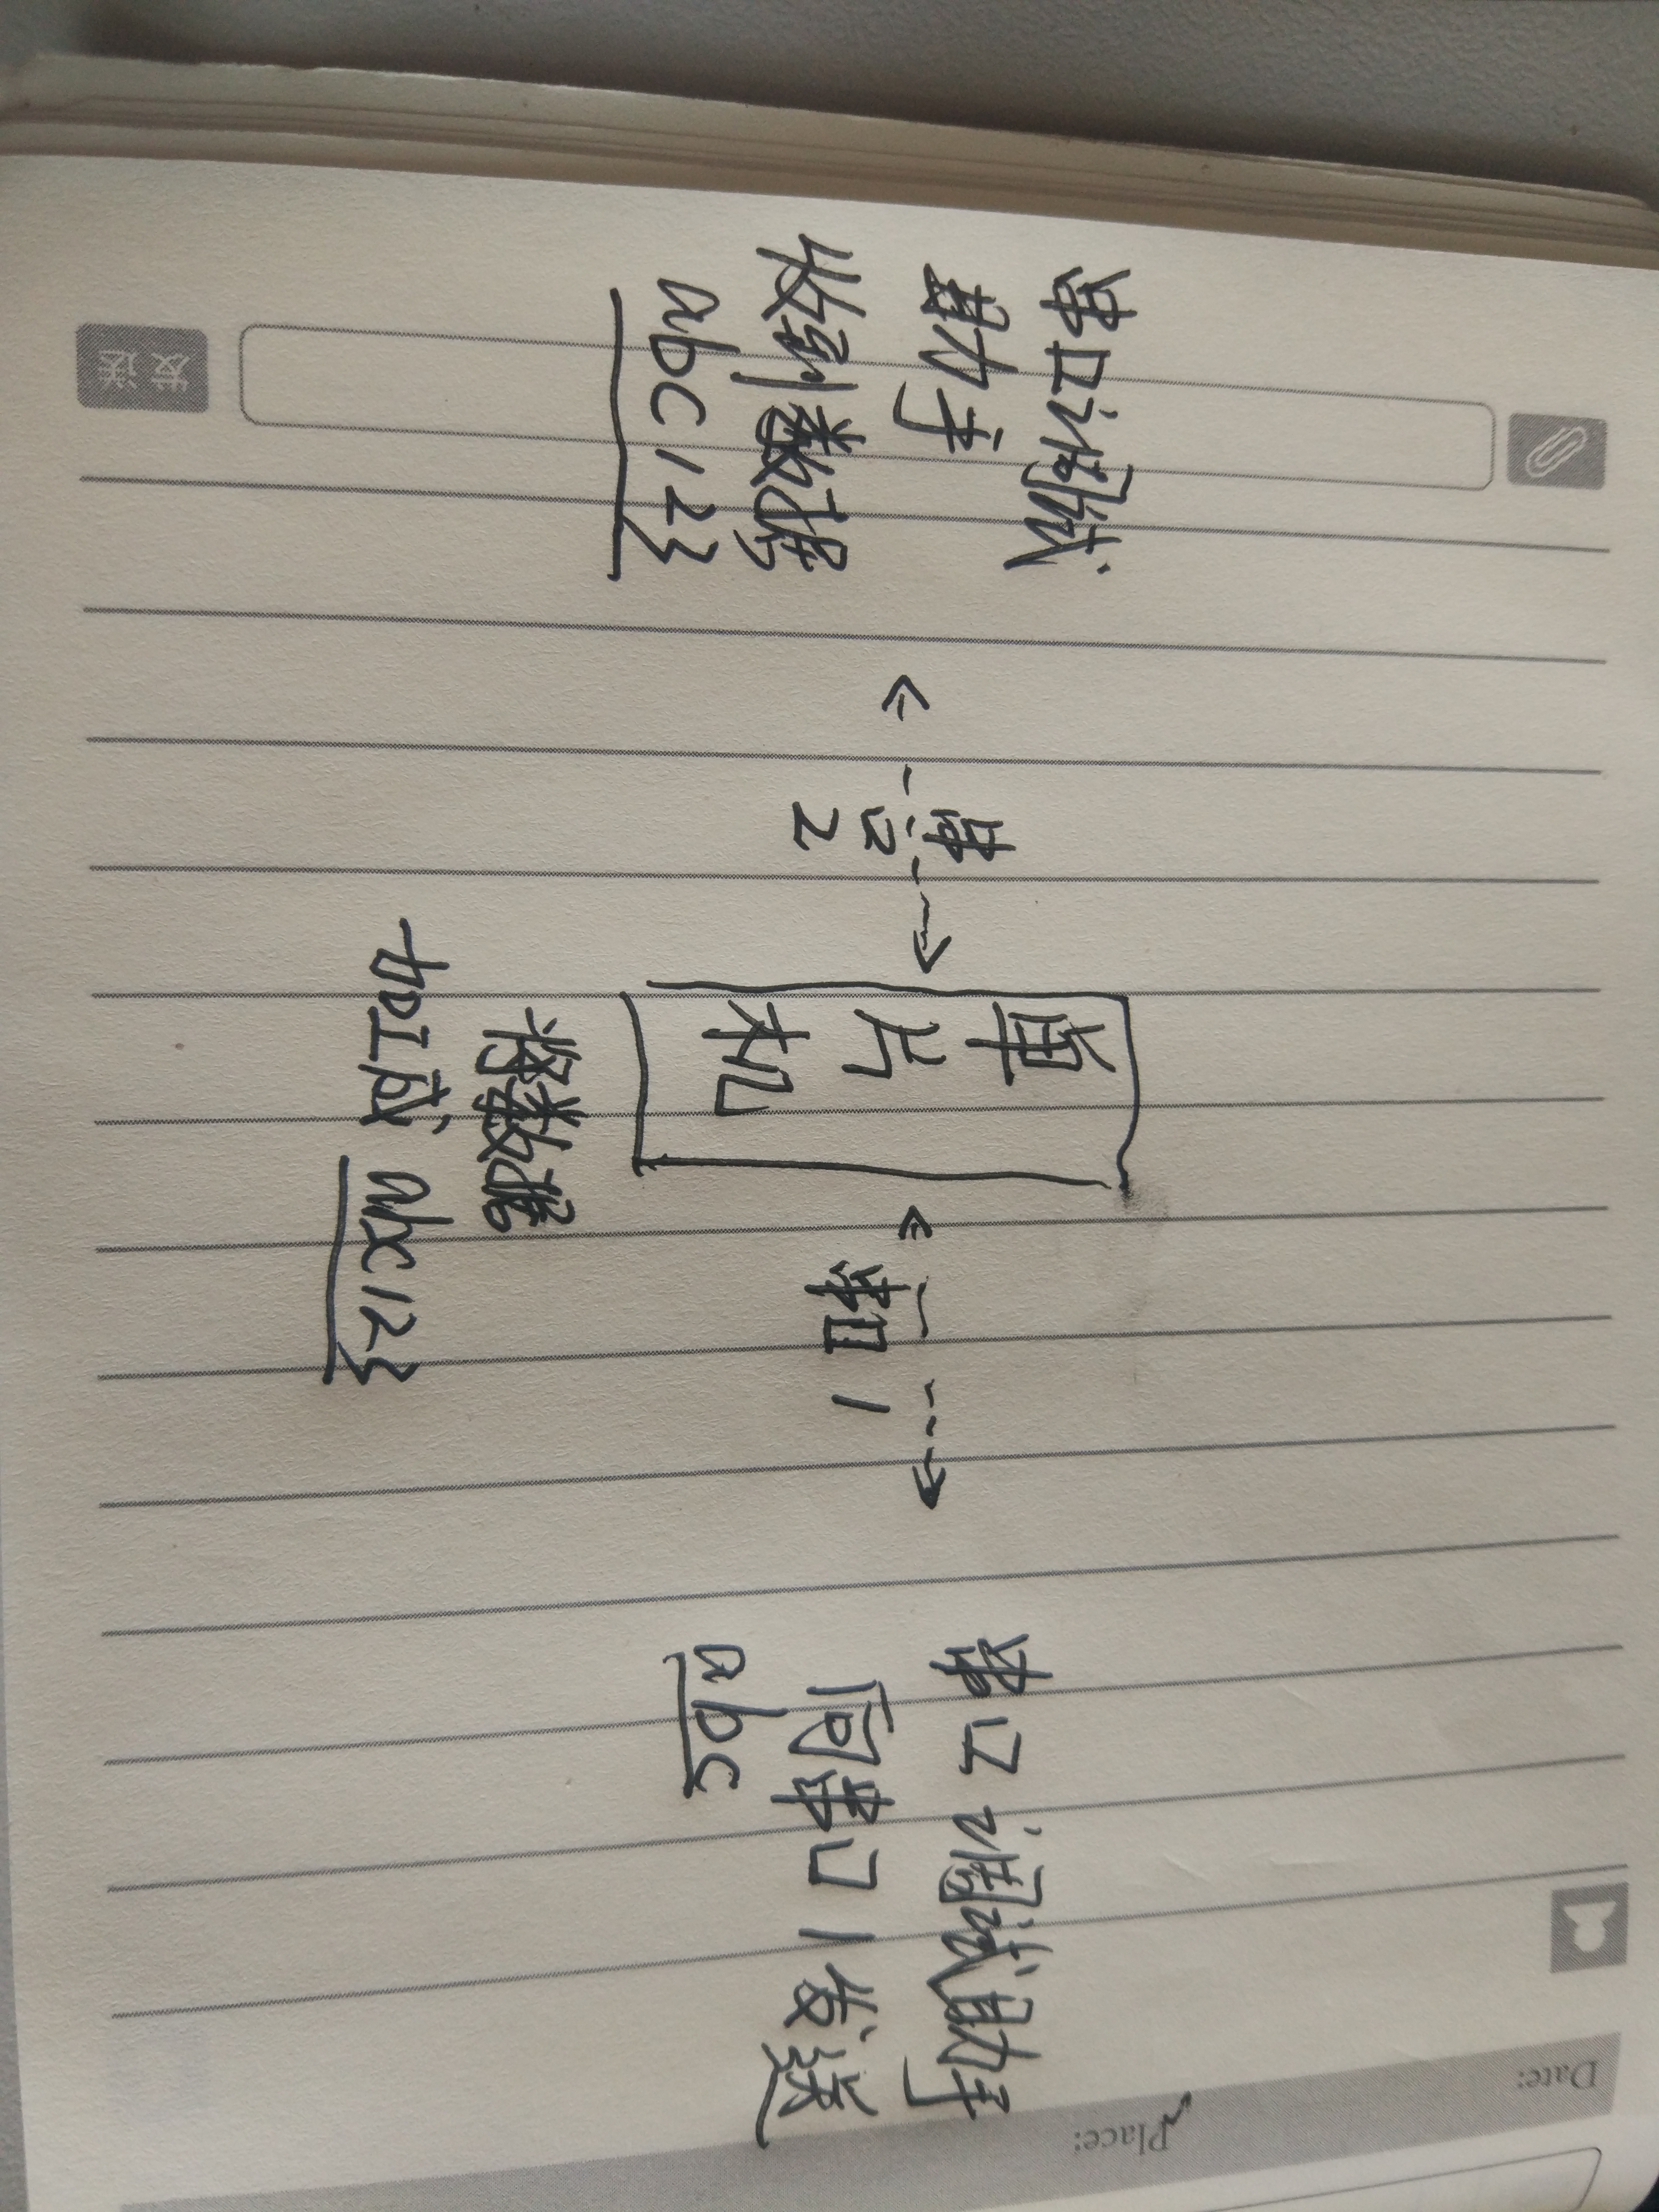 串口调试
助手
收到数据
abc123
串
口
2
单
片
机
将数据
加工成 abc123
串口1
串口调试助手
向串口1发送
abc
发送
Date:
Place: